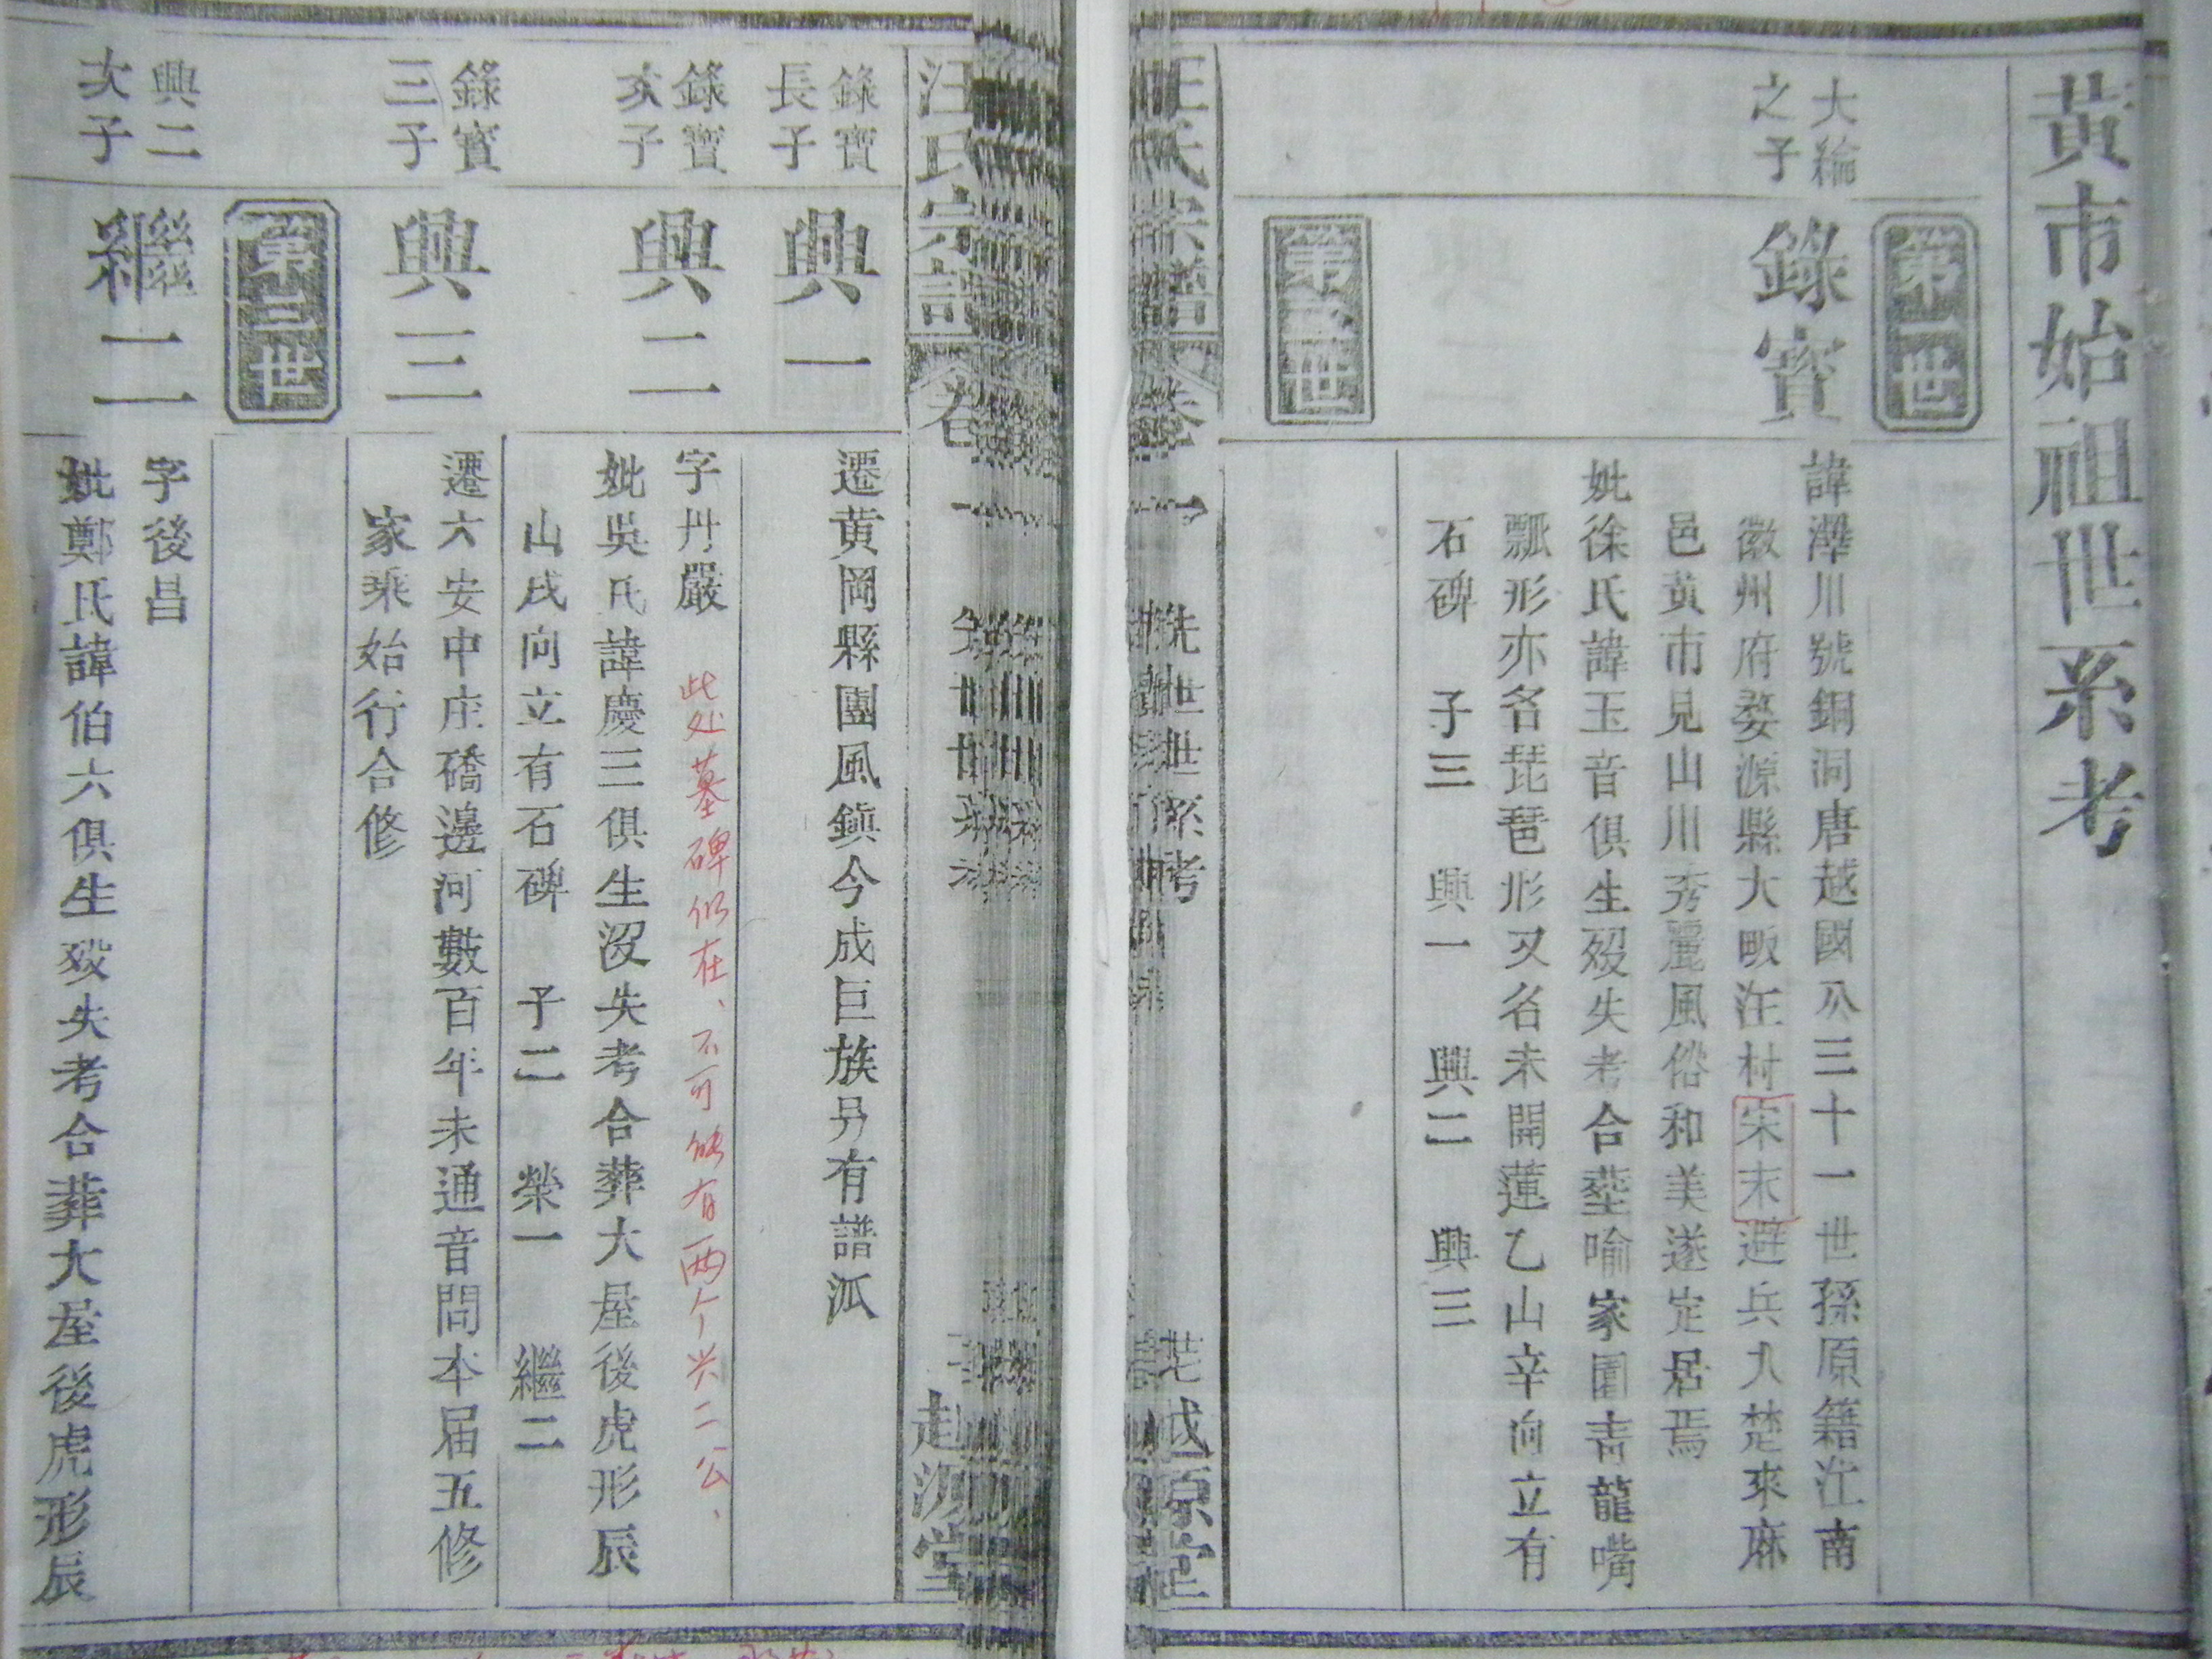 黃市始祖世系考
第一世
大綸
之子
錄寶
諱灘川號銅洞唐越國公三十一世孫原籍江南
徽州府婺源縣大畈汪村宋末避兵入楚來麻
邑黃市見山川秀麗風俗和美遂定居焉
妣徐氏諱玉音俱生歿失考合塟喻家園靑龍嘴
瓢形亦名琵琶形又名未開蓮乙山辛向立有
石碑 子三 興一 興二 興三
第二世
汪氏宗譜
卷一
先世世系考
越源堂
汪氏宗譜
卷一
錄寶
長子
興一
遷黃岡縣團風鎮今成巨族另有譜派
錄寶
次子
興二
字丹嚴
此处墓碑仍在、不可能有两个兴二公、
妣吳氏諱慶三俱生沒失考合葬大屋後虎形辰
山戌向立有石碑 子二 榮一 繼二
錄寶
三子
興三
遷六安中庄礄邊河數百年未通音問本届五修
家乘始行合修
第三世
興二
次子
繼二
字後昌
妣鄭氏諱伯六俱生歿失考合葬大屋後虎形辰